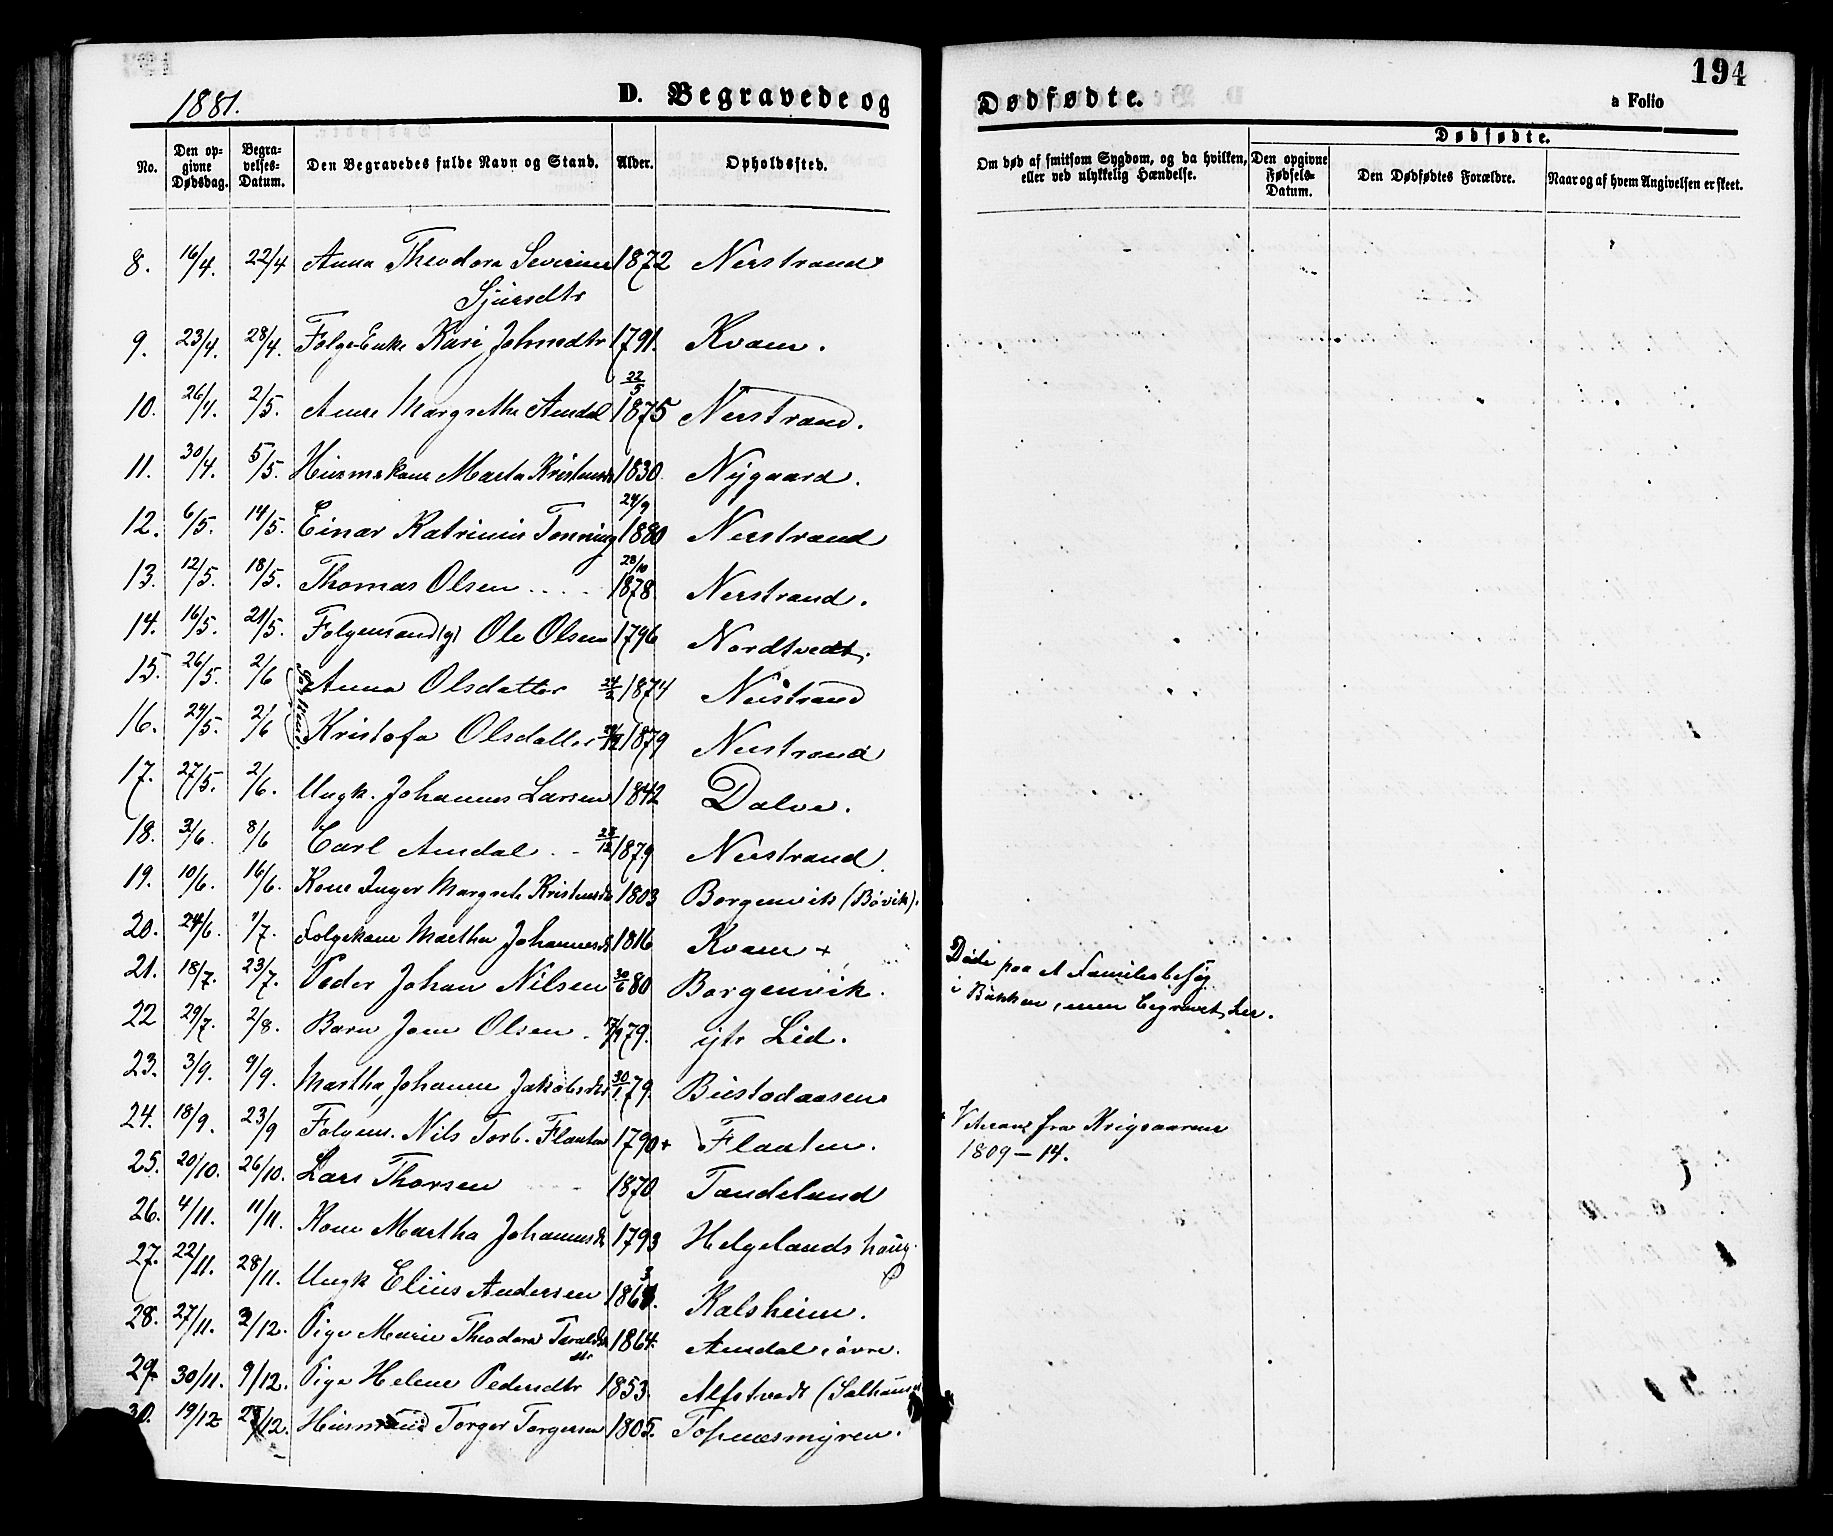 1881.
D. Begravede og
Dødfødte.
194
a Folio
No.
Den op-
givne
Dødsdag.
Begra-
velses-
Datum.
Den Begravedes fulde Navn og Stand.
Alder.
Opholdssted.
Om død af smitsom Sygdom, og da hvilken,
eller ved ulykkelig Hændelse.
Dødfødte.
Den opgivne
Fødsels-
Datum.
Den Dødfødtes Forældre.
Naar og af hvem Angivelsen er skeet.
8. 16/4. 22/4 Anna Theodora Severine 1872 Nerstrand
Sjursdtr
9. 23/4. 28/4. Folge-Enke Kari Johnsdtr 1791. Kvam.
10. 26/4. 2/5. Anne Margrethe Amdal 22/5 1875 Nerstrand.
11. 30/4. 5/5. Husmskone Marta Kristensd 1830. Nygaard.
12. 6/5. 14/5. Einar Katrinius Tonning 24/9 1880 Nerstrand
13. 12/5. 18/5. Thomas Olsen .... 28/10 1878. Nerstrand.
14. 16/5. 21/5. Folgemand(g) Ole Olsen 1796 Nordtvedt.
15. 26/5. 2/6 Anna Olsdatter 24/2 1874 Nerstrand
16. 24/5. 2/6 Kristofa Olsdatter 1879 Nerstrand
17. 27/5. 2/6. Ungk. Johannes Larsen 1842 Dalva.
18. 3/6. 8/6 Carl Amdal .. 23/12 1879 Nerstrand.
19. 10/6. 16/6. Kone Inger Margrete Kristensd 1803 Borgenvik (Bövik).
20. 24/6. 1/7. Folgekone Martha Johannesd 1816 Kvam +
21. 18/7. 23/7. Peder Johan Nilsen 30/6 80 Borgenvik.
Døde paa et Familiebesøg
i Bakken, men begravet her.
22 29/7. 2/8. Barn Jone Olsen . 79. ytr Lid.
23. 3/9. 9/9. Martha Johanne Jakobsdtr 30/1 79. Bustadaasen
24. 18/9. 23/9 Folgem. Nils Torb. Flaaten 1790 + Flaaten.
+ Veteran fra Krigsaarene
1809 – 14.
25. 20/10. 26/10. Lars Thorsen 1870 Tandeland
26. 4/11. 11/11. Kone Martha Johannesd 1793 Helgelandshaug
27. 22/11. 28/11. Ungk Elius Andersen 1863. Kalsheim.
28. 27/11. 3/12. Pige Marie Theodora Taralds 1864. Amdal, övre.
dtr
29. 30/11. 9/12. Pige Helene Pedersdtr 1853. Alfstvedt (Salhaus
30. 19/12 /12. Husmand Torger Torgersen 1805. Topnæsmyren.